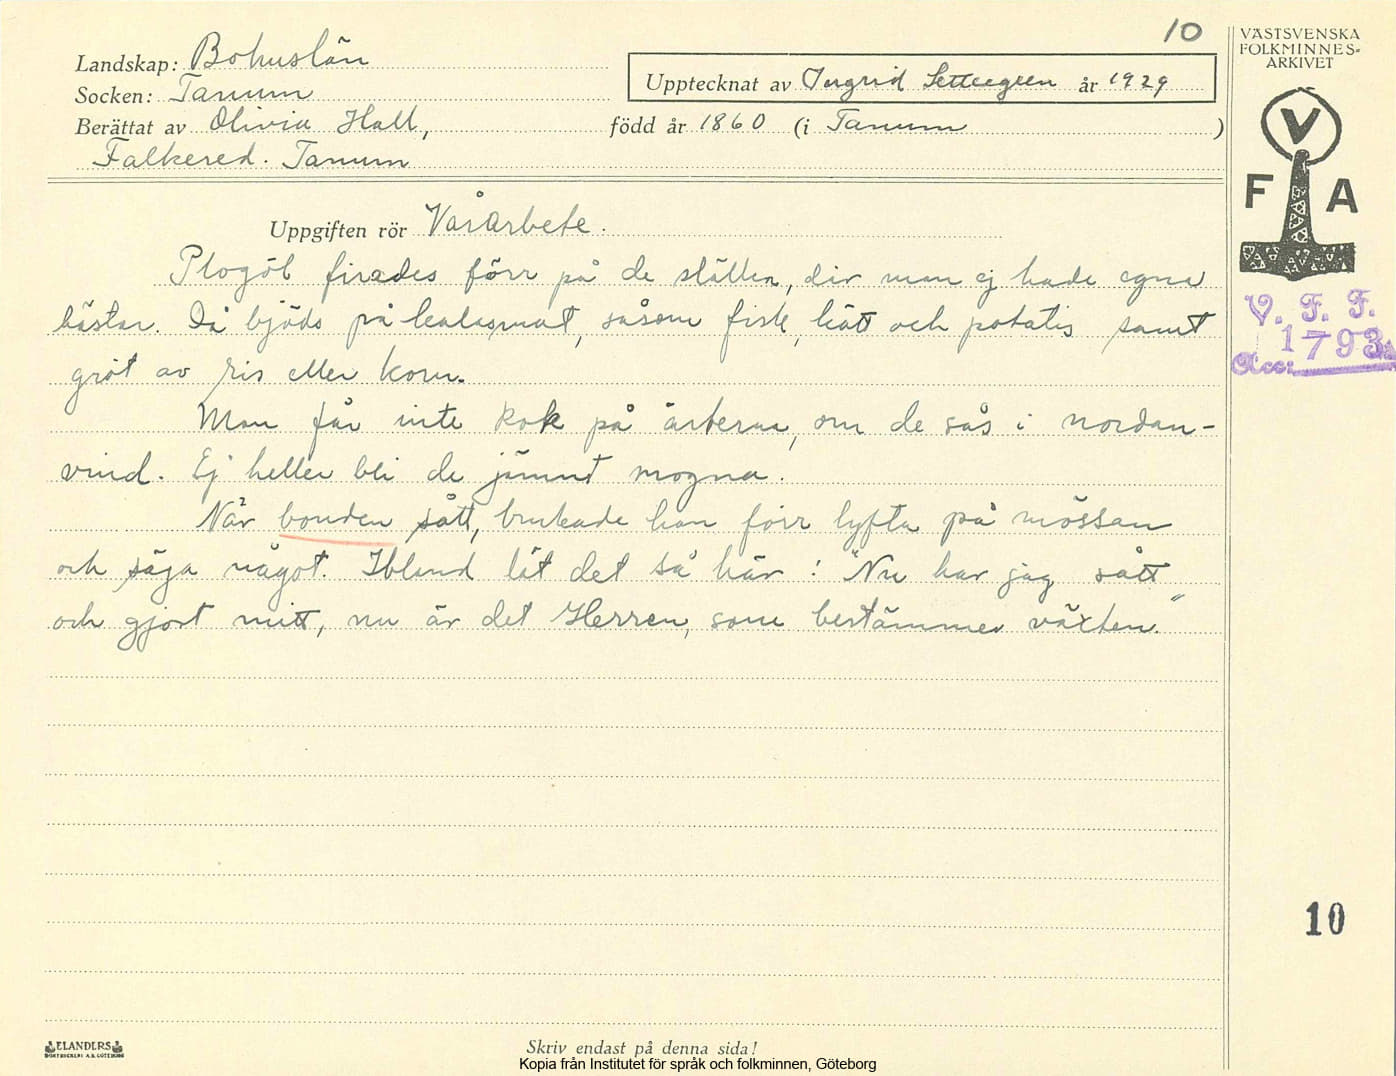 10
VÄSTSVENSKA
FOLKMINNES-
ARKIVET
Landskap: Bohuslän
Socken: Tanum
Upptecknat av Ingrid år 1929
Berättat av Olivia Hall,
född år 1860 (i Tanum )
Falkered. Tanum
V
F A
V. F. F.
1793
Acc:
Uppgiften rör Vårarbete.
Plogöl firades förr på de ställen, där man ej hade egna
hästar. Då bjöds på kalasmat, såsom fisk, kött och potatis samt
gröt av ris eller korn.
Man får inte kok på ärterna, om de sås i nordan-
vind. Ej heller bli de jämnt mogna.
När bonden sått, brukade han förr lyfta på mössan
och säga något. Ibland löt det så här: "Nu har jag sått
och gjort mitt, nu är det Herren, som bestämmer växten."
10
ELANDERS
BOKTRYCKERI A.B. GÖTEBORG
Skriv endast på denna sida!
Kopia från Institutet för språk och folkminnen, Göteborg